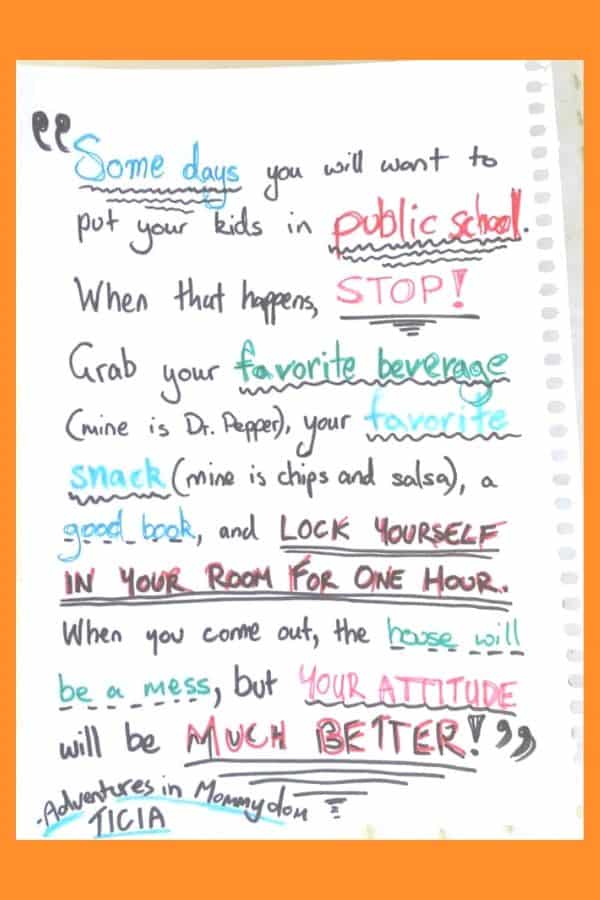 “Some days you will want to
put your kids in public school.
When that happens, STOP!
Grab your favorite beverage
(mine is Dr. Pepper), your favorite
snack (mine is chips and salsa), a
good book, and LOCK YOURSELF
IN YOUR ROOM FOR ONE HOUR.
When you come out, the house will
be a mess, but YOUR ATTITUDE
will be MUCH BETTER!”
-Adventures in Mommydom
TICIA